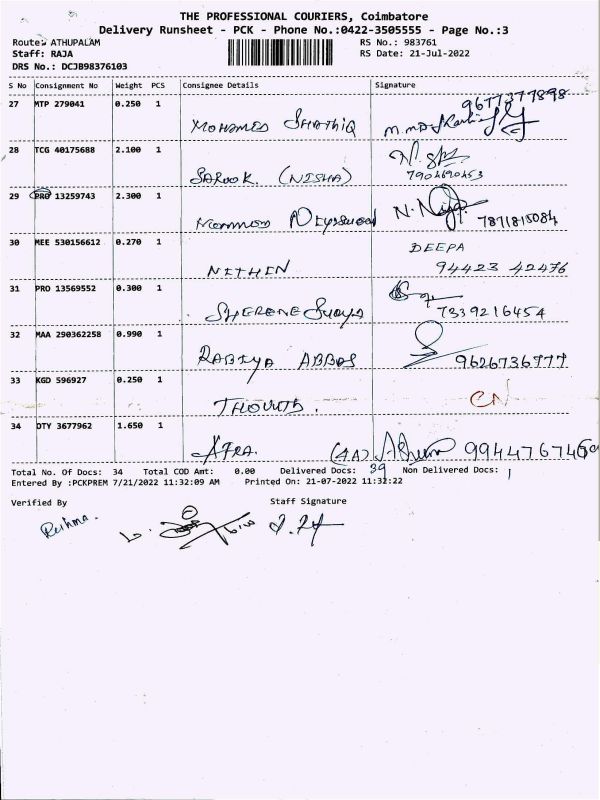 THE PROFESSIONAL COURIERS, Coimbatore
Delivery Runsheet - PCK - Phone No.:0422-3505555 - Page No.:3
Route: ATHUPALAM RS No.: 983761
Staff: RAJA RS Date: 21-Jul-2022
DRS No.: DCJB98376103
S No Consignment No Weight PCS Consignee Details Signature
27 MTP 279041 0.250 1
9677377898
MOHAMED SHATHIQ
28 TCG 40175688 2.100 1
SAROOK. (NISHA)
29 PRO 13259743 2.300 1
7871815084
30 MEE 530156612 0.270 1 DEEPA
NITHIN 94423 42476
31 PRO 13569552 0.300 1
SHERENE 7339216454
32 MAA 290362258 0.990 1
RABIYA ABBAS 9626736777
33 KGD 596927 0.250 1
CN
34 DTY 3677962 1.650 1
AFRA.
Total No. Of Docs: 34 Total COD Amt: 0.00 Delivered Docs: 39 Non Delivered Docs: 1
Entered By :PCKPREM 7/21/2022 11:32:09 AM Printed On: 21-07-2022 11:32:22
Verified By Staff Signature